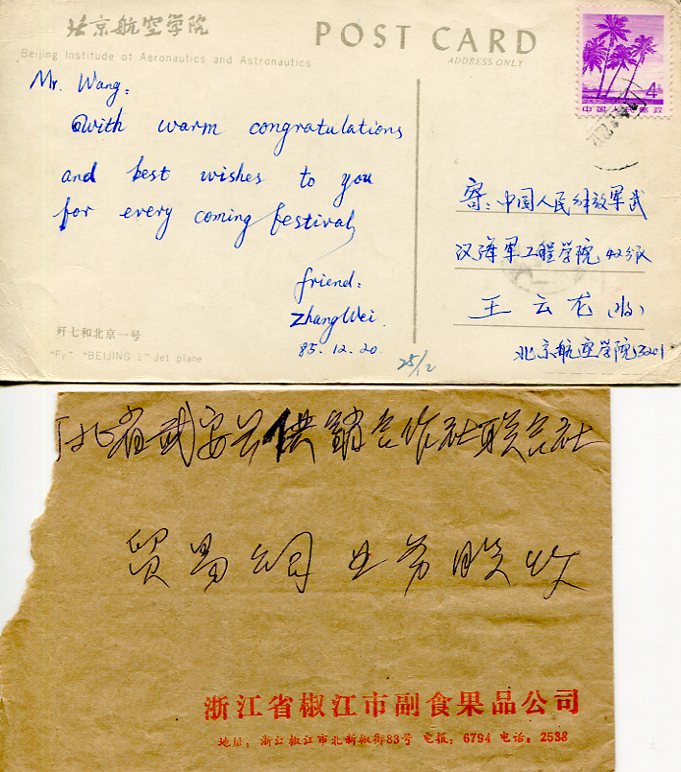 北京航空学院
Beijing Institude of Aeronautics and Astronautics
POST CARD
ADDRESS ONLY
4分
中国人民邮政
Mr. Wang:
With warm congratulations
and best wishes to you
for every coming festival
friend:
Zhang Wei.
85.12.20.
25/12
寄:中国人民解放军武
汉海军工程学院42分队
王云龙(收)
北京航空学院3201
歼七和北京一号
"F7" "BEIJING 1" Jet plane
北省武安县供销合作社联合社
贸易公司业务股收
浙江省椒江市副食果品公司
地址:浙江椒江市北新椒街83号 电报:6794 电话:2538